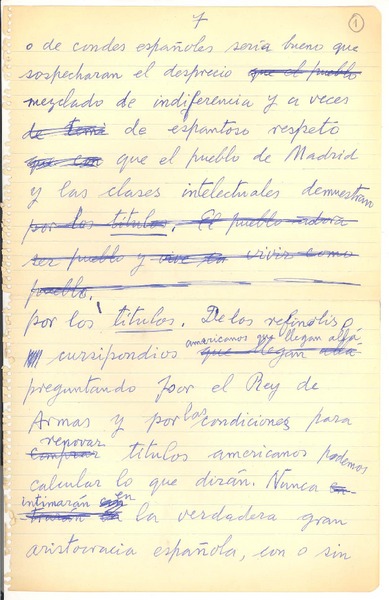 7
1
o de condes españoles sería bueno que
sospecharan el desprecio que el pueblo
mezclado de indiferencia y a veces
de temi de espantoso respeto
que con que el pueblo de Madrid
y las clases intelectuales demuestran
por los títulos. El pueblo adora
ser pueblo y vivir como
pueblo.
por los títulos. De los refinolis o
americanos que llegan allá
cursipondios que llegan allá
preguntando por el Rey de
Armas y por las condiciones para
renovar
comprar títulos americanos podemos
calcular lo que dirán. Nunca
intimarán en
la verdadera gran
aristocracia española, con o sin